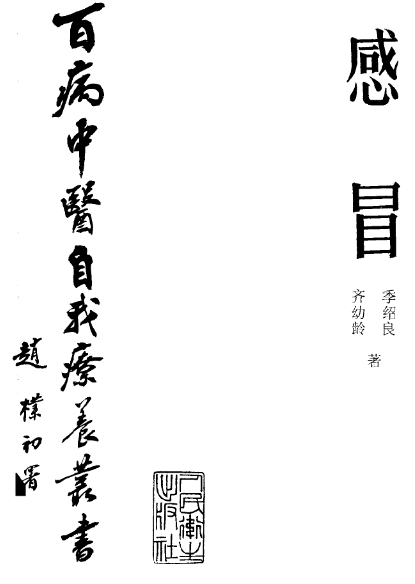 感冒
季绍良
齐幼龄
著
百病中醫自我療養叢書
趙樸初署
人民衛生
出版社